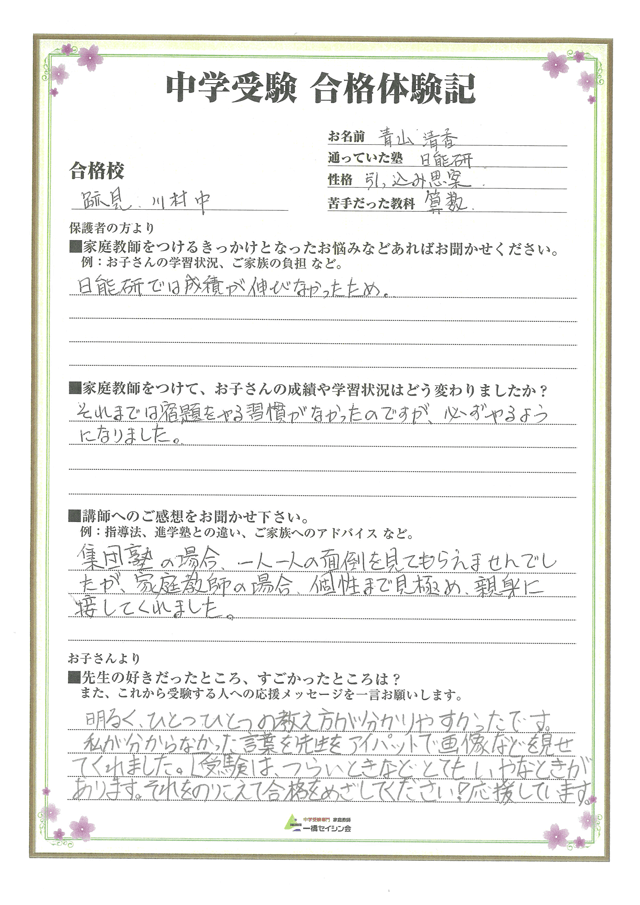 中学受験 合格体験記
お名前 青山 清香
通っていた塾 日能研
性格 引っ込み思案.
苦手だった教科 算数.
合格校
跡見.川村中
保護者の方より
■家庭教師をつけるきっかけとなったお悩みなどあればお聞かせください。
例：お子さんの学習状況、ご家族の負担 など。
日能研では成績が伸びなかったため。
■家庭教師をつけて、お子さんの成績や学習状況はどう変わりましたか？
それまでは宿題をやる習慣がなかったのですが、必ずやるよう
になりました。
■講師へのご感想をお聞かせ下さい。
例：指導法、進学塾との違い、ご家族へのアドバイス など。
集団塾の場合、一人一人の面倒を見てもらえませんでし
たが、家庭教師の場合、個性まで見極め、親身に
接してくれました。
お子さんより
■先生の好きだったところ、すごかったところは？
また、これから受験する人への応援メッセージを一言お願いします。
明るく、ひとつひとつの教え方が分かりやすかったです。
私が分からなかった言葉を先生をアイパットで画像などを見せ
てくれました。受験は、つらいときなどとてもいやなときが
あります。それをのりこえて合格をめざしてください？応援しています。
中学受験専門 家庭教師
一橋セイシン会